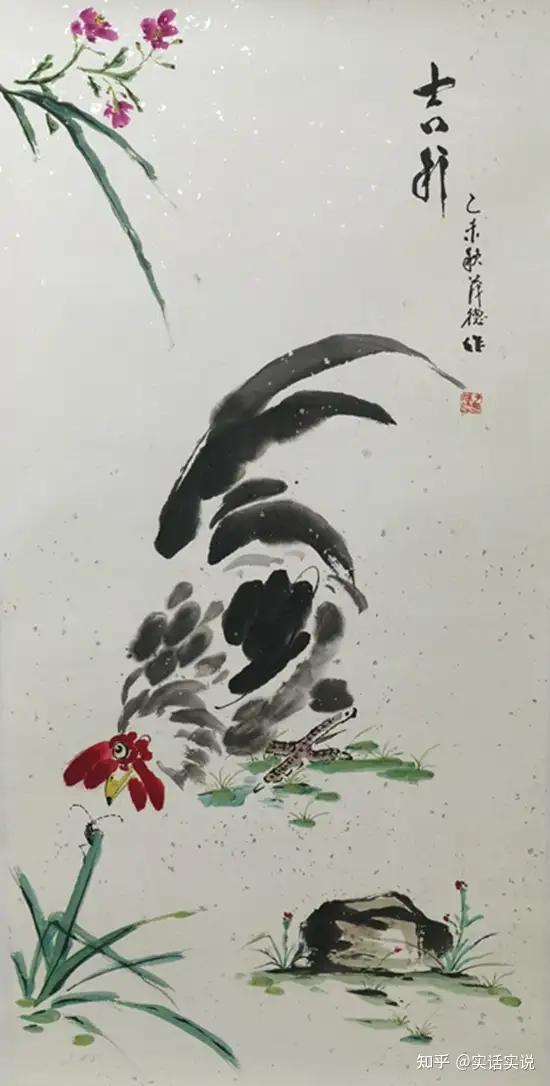 吉祥
乙未秋德作
知乎 @实话实说